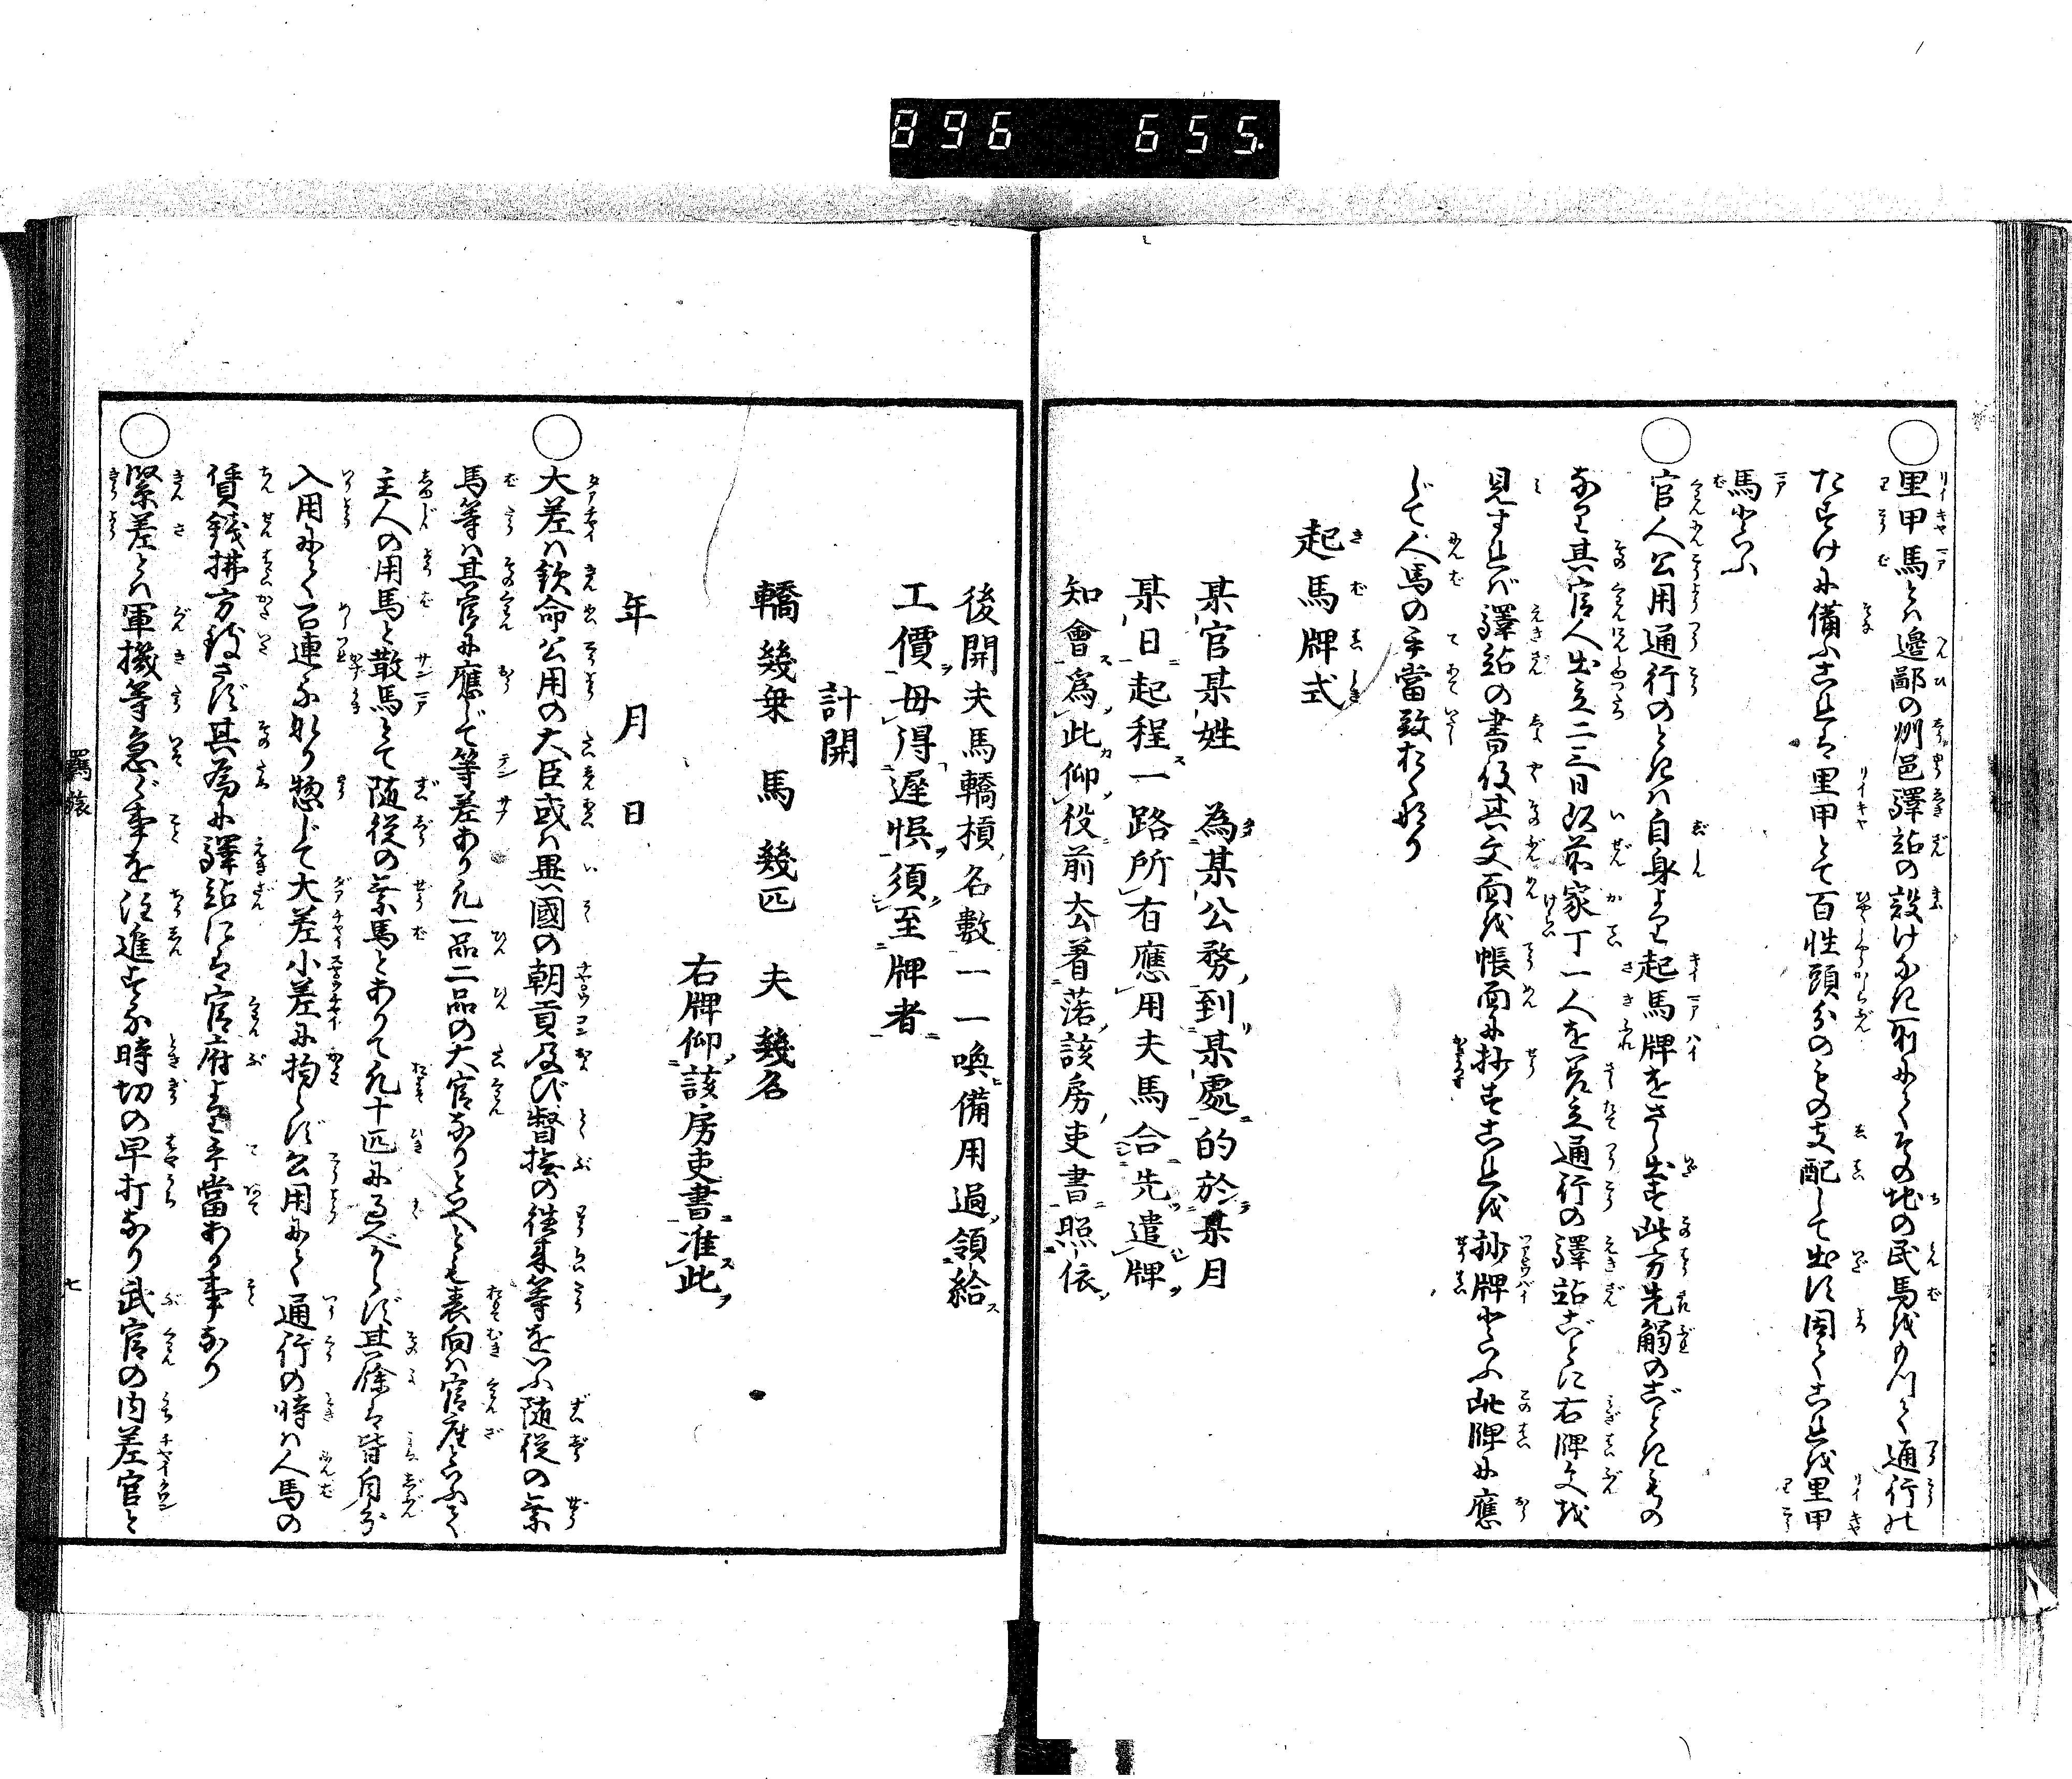 896 655.
○里甲馬とハ邊鄙の州邑驛站の設けなき所にてその地の民馬を以て通行の
たすけに備ふこれを里甲とて百性頭分のもの支配して出す因てこれを里甲
馬といふ
○官人公用通行のときハ自身より起馬牌をさし出す此方先觸のごときもの
なり其官人出立二三日以前家丁一人を差立通行の驛站ごとに右牌文を
見すれバ驛站の書役其文面を帳面に抄すこれを抄牌といふ此牌に應
じて人馬の手當致おくなり
起馬牌式
某官某姓 為某公務到某處的於某月
某日起程一路所有應用夫馬合先遣牌
知會爲此仰役前去着落該房吏書照依
後開夫馬轎槓名數一一喚備用過領給
工價毋得遲悞須至牌者
計開
轎幾乗 馬幾匹 夫幾名
右牌仰該房吏書准此
年 月 日
○大差ハ欽命公用の大臣或ハ異國の朝貢及び督撫の徃来等をいふ随従の乗
馬等ハ其官に應じて等差あり凡一品二品の大官なりといへども表向ハ官座といふて
主人の用馬と散馬とて随従の乗馬とありて凡十匹に過べからず其餘は皆自分
入用にて召連るなり惣じて大差小差に拘らず公用にて通行の時ハ人馬の
賃錢拂方致さず其為に驛站にハ官府より手當ある事なり
○緊差とハ軍機等急ぐ事を注進する時切の早打なり武官の内差官と
羇旅
七